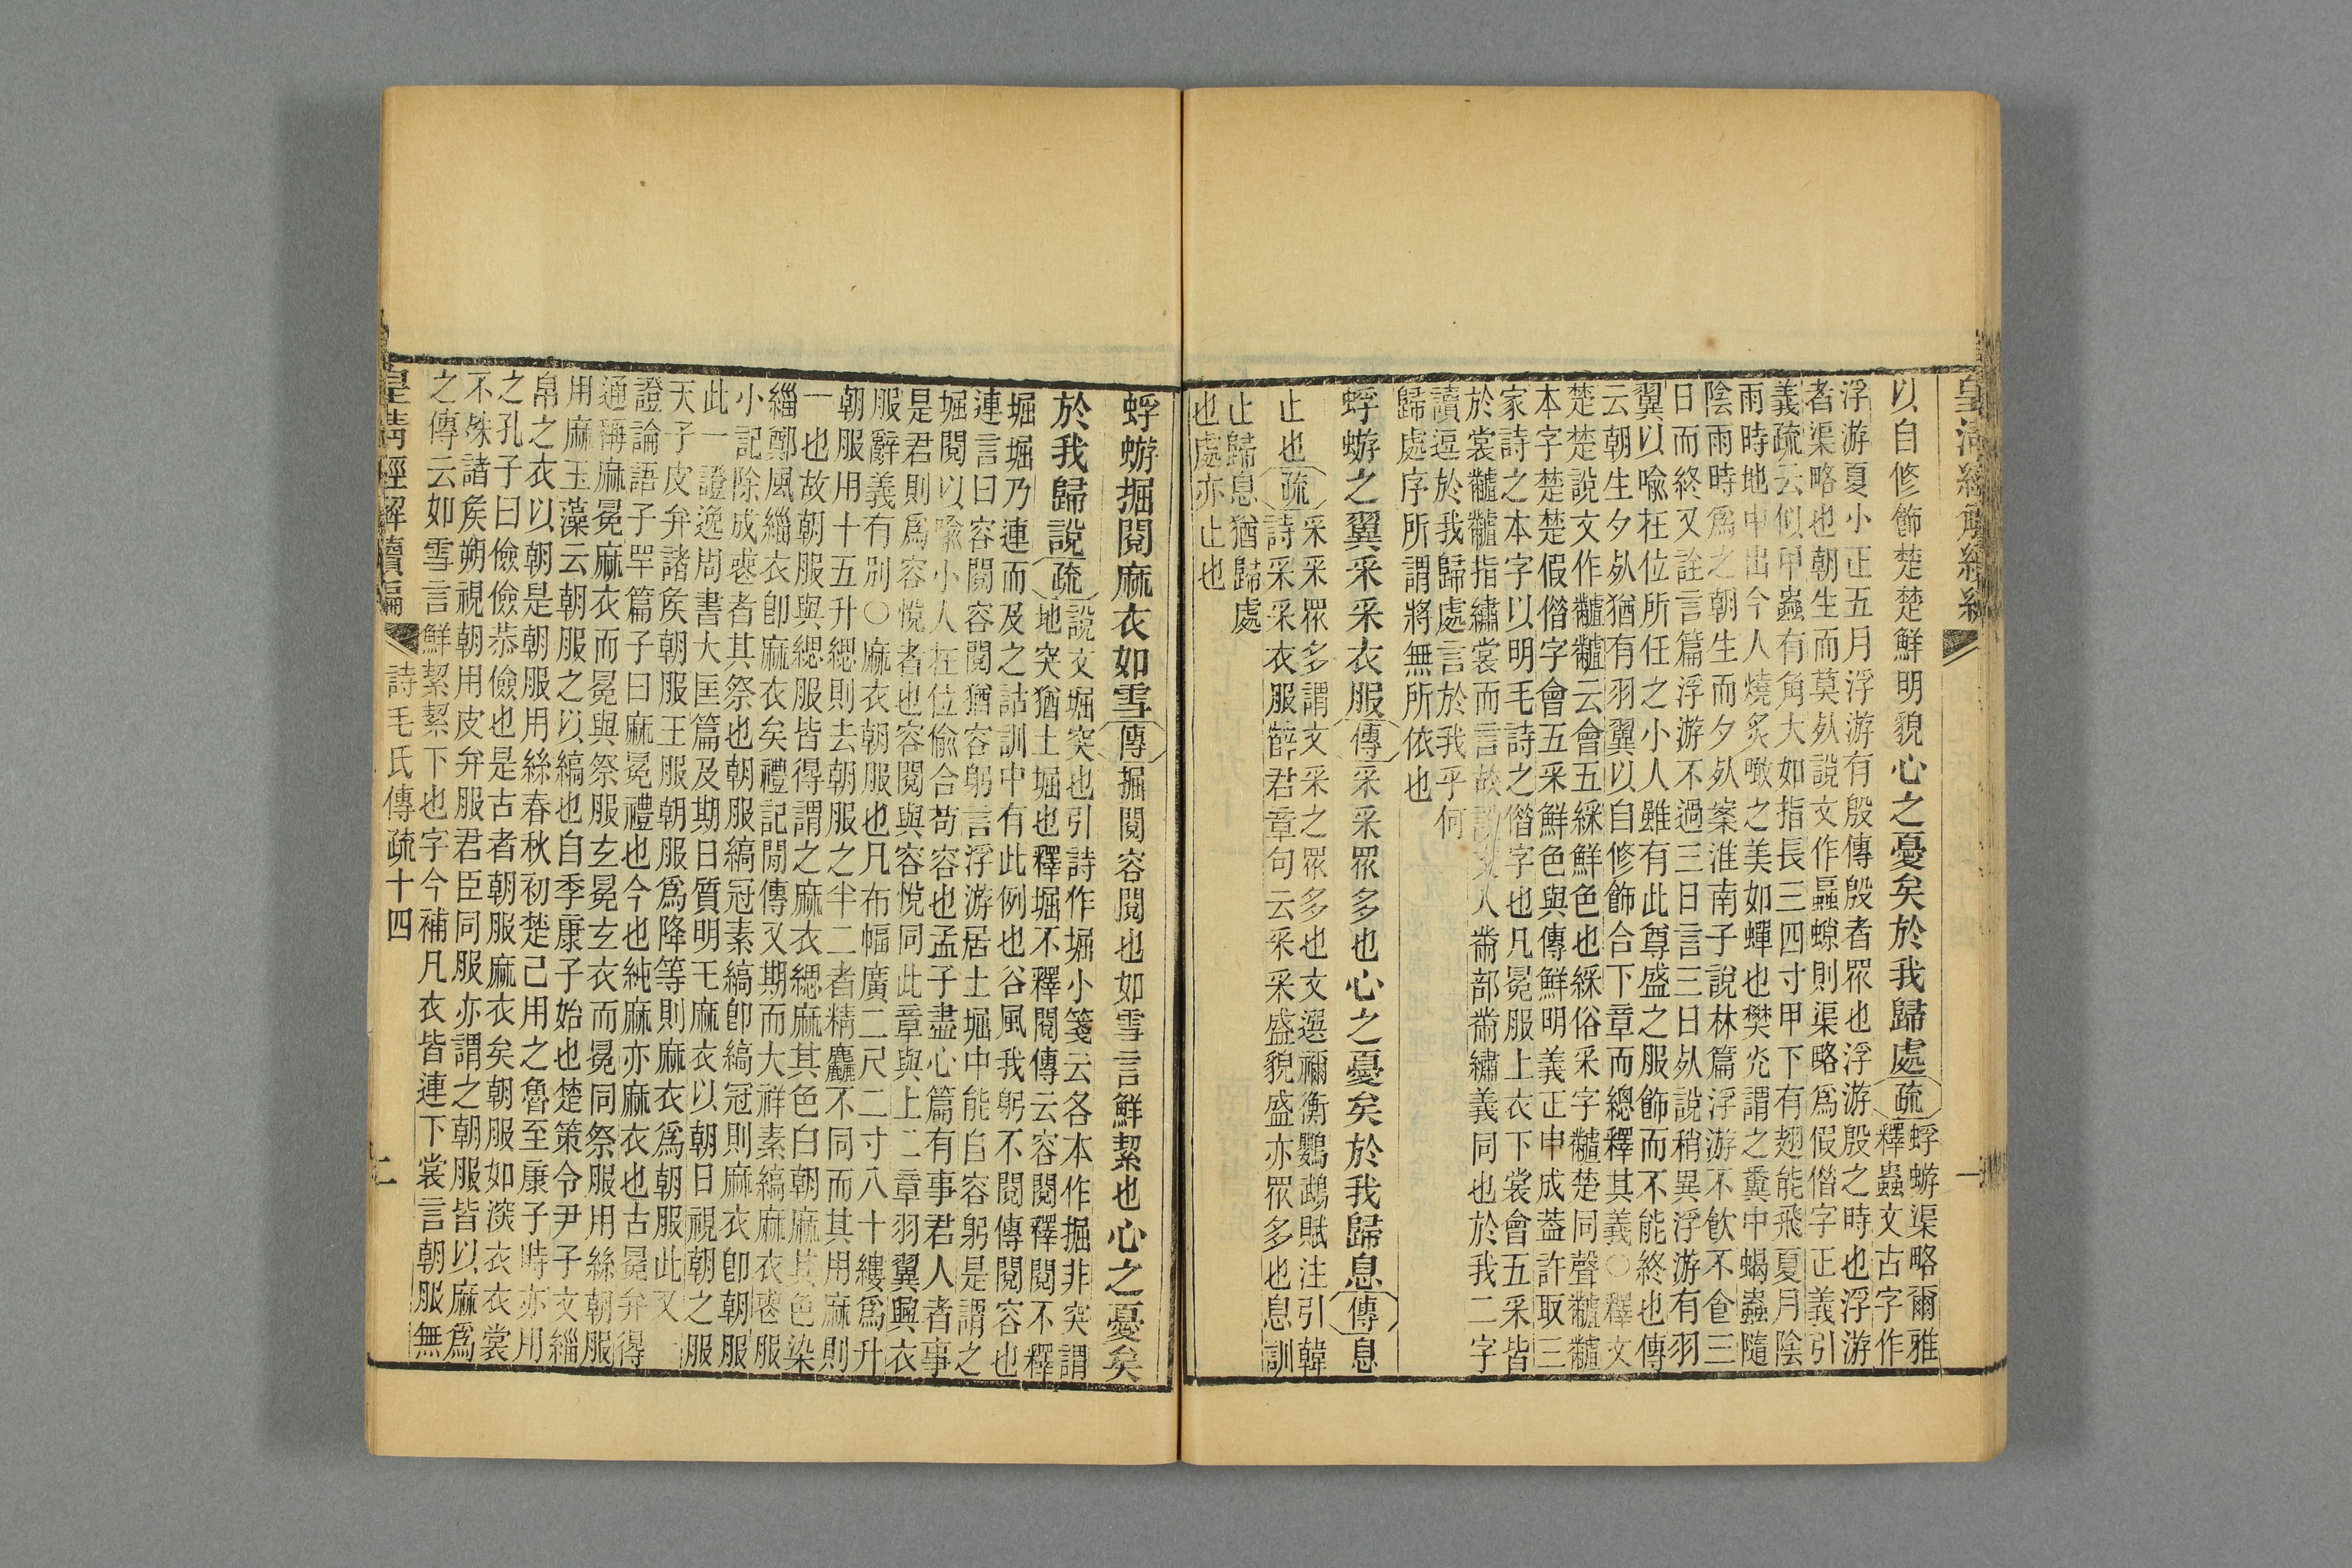 皇清經解續編
以自修飾楚楚鮮明貌心之憂矣於我歸處疏蜉蝣渠略爾雅
釋蟲文古字作
浮游夏小正五月浮游有殷傳殷者眾也浮游殷之時也浮游
者渠略也朝生而莫死說文作蟁蟟則渠略為假借字正義引
義疏云似甲蟲有角大如指長三四寸甲下有翅能飛夏月陰
雨時地中出今人燒炙噉之美如蟬也樊光謂之糞中蝎蟲隨
陰雨時為之朝生而夕死案淮南子說林篇浮游不飲不食三
日而終又詮言篇浮游不過三日言三日死說稍異浮游有羽
翼以喻在位所任之小人雖有此尊盛之服飾而不能終也傳
云朝生夕死猶有羽翼以自修飾合下章而總釋其義○釋文
楚楚說文作黼黼云會五綵鮮色也綵俗采字黼楚同聲黼黼
本字楚楚假借字會五采鮮色與傳鮮明義正申成葢許取三
家詩之本字以明毛詩之借字也凡冕服上衣下裳會五采皆
於裳黼黼指繡裳而言故入黹部黹繡義同也於我二字
讀逗於我歸處言於我乎何
歸處序所謂將無所依也
蜉蝣之翼采采衣服傳采采眾多也心之憂矣於我歸息傳息
止也疏采采眾多謂文采之眾多也文選禰衡鸚鵡賦注引韓
詩采采衣服薛君章句云采采盛貌盛亦眾多也息訓
止歸息猶歸處
也處亦止也
蜉蝣掘閱麻衣如雪傳掘閱容閱也如雪言鮮絜也心之憂矣
於我歸說疏說文堀突也引詩作堀小箋云各本作掘非突謂
地突猶土堀也釋堀不釋閱傳云容閱釋閱不釋
堀堀乃連而及之詁訓中有此例也谷風我躬不閱傳閱容也
連言曰容閱容閱猶容躬言浮游居土堀中能自容躬是謂之
堀閱以喻小人在位偷合苟容也孟子盡心篇有事君人者事
是君則為容悅者也容閱與容悅同此章與上二章羽翼與衣
服辭義有別○麻衣朝服也凡布幅廣二尺二寸八十縷為升
朝服用十五升緦則去朝服之半二者精麤不同而其用麻則
一也故朝服與緦服皆得謂之麻衣緦麻其色白朝麻其色染
緇鄭風緇衣卽麻衣矣禮記閒傳又期而大祥素縞麻衣喪服
小記除成喪者其祭也朝服縞冠素縞卽縞冠則麻衣卽朝服
此一證逸周書大匡篇及期日質明王麻衣以朝日視朝之服
天子皮弁諸矦朝服王服朝服為降等則麻衣為朝服此又一
證論語子罕篇子曰麻冕禮也今也純麻亦麻衣也古冕弁得
通稱麻冕麻衣而冕與祭服玄冕玄衣而冕同祭服用絲朝服
用麻玉藻云朝服之以縞也自季康子始也楚策令尹子文緇
帛之衣以朝是朝服用絲春秋初楚已用之魯至康子時亦用
之孔子曰儉儉恭儉也是古者朝服麻衣矣朝服如深衣衣裳
不殊諸矦朔視朝用皮弁服君臣同服亦謂之朝服皆以麻為
之傳云如雪言鮮絜絜下也字今補凡衣皆連下裳言朝服無
皇清經解續編 詩毛氏傳疏十四